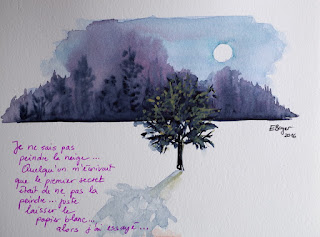 E Boyer
2016
Je ne sais pas
peindre la neige...
Quelqu'un m'écrivait
que le premier secret
était de ne pas la
peindre... juste
laisser le
papier blanc...
alors j'ai essayé...